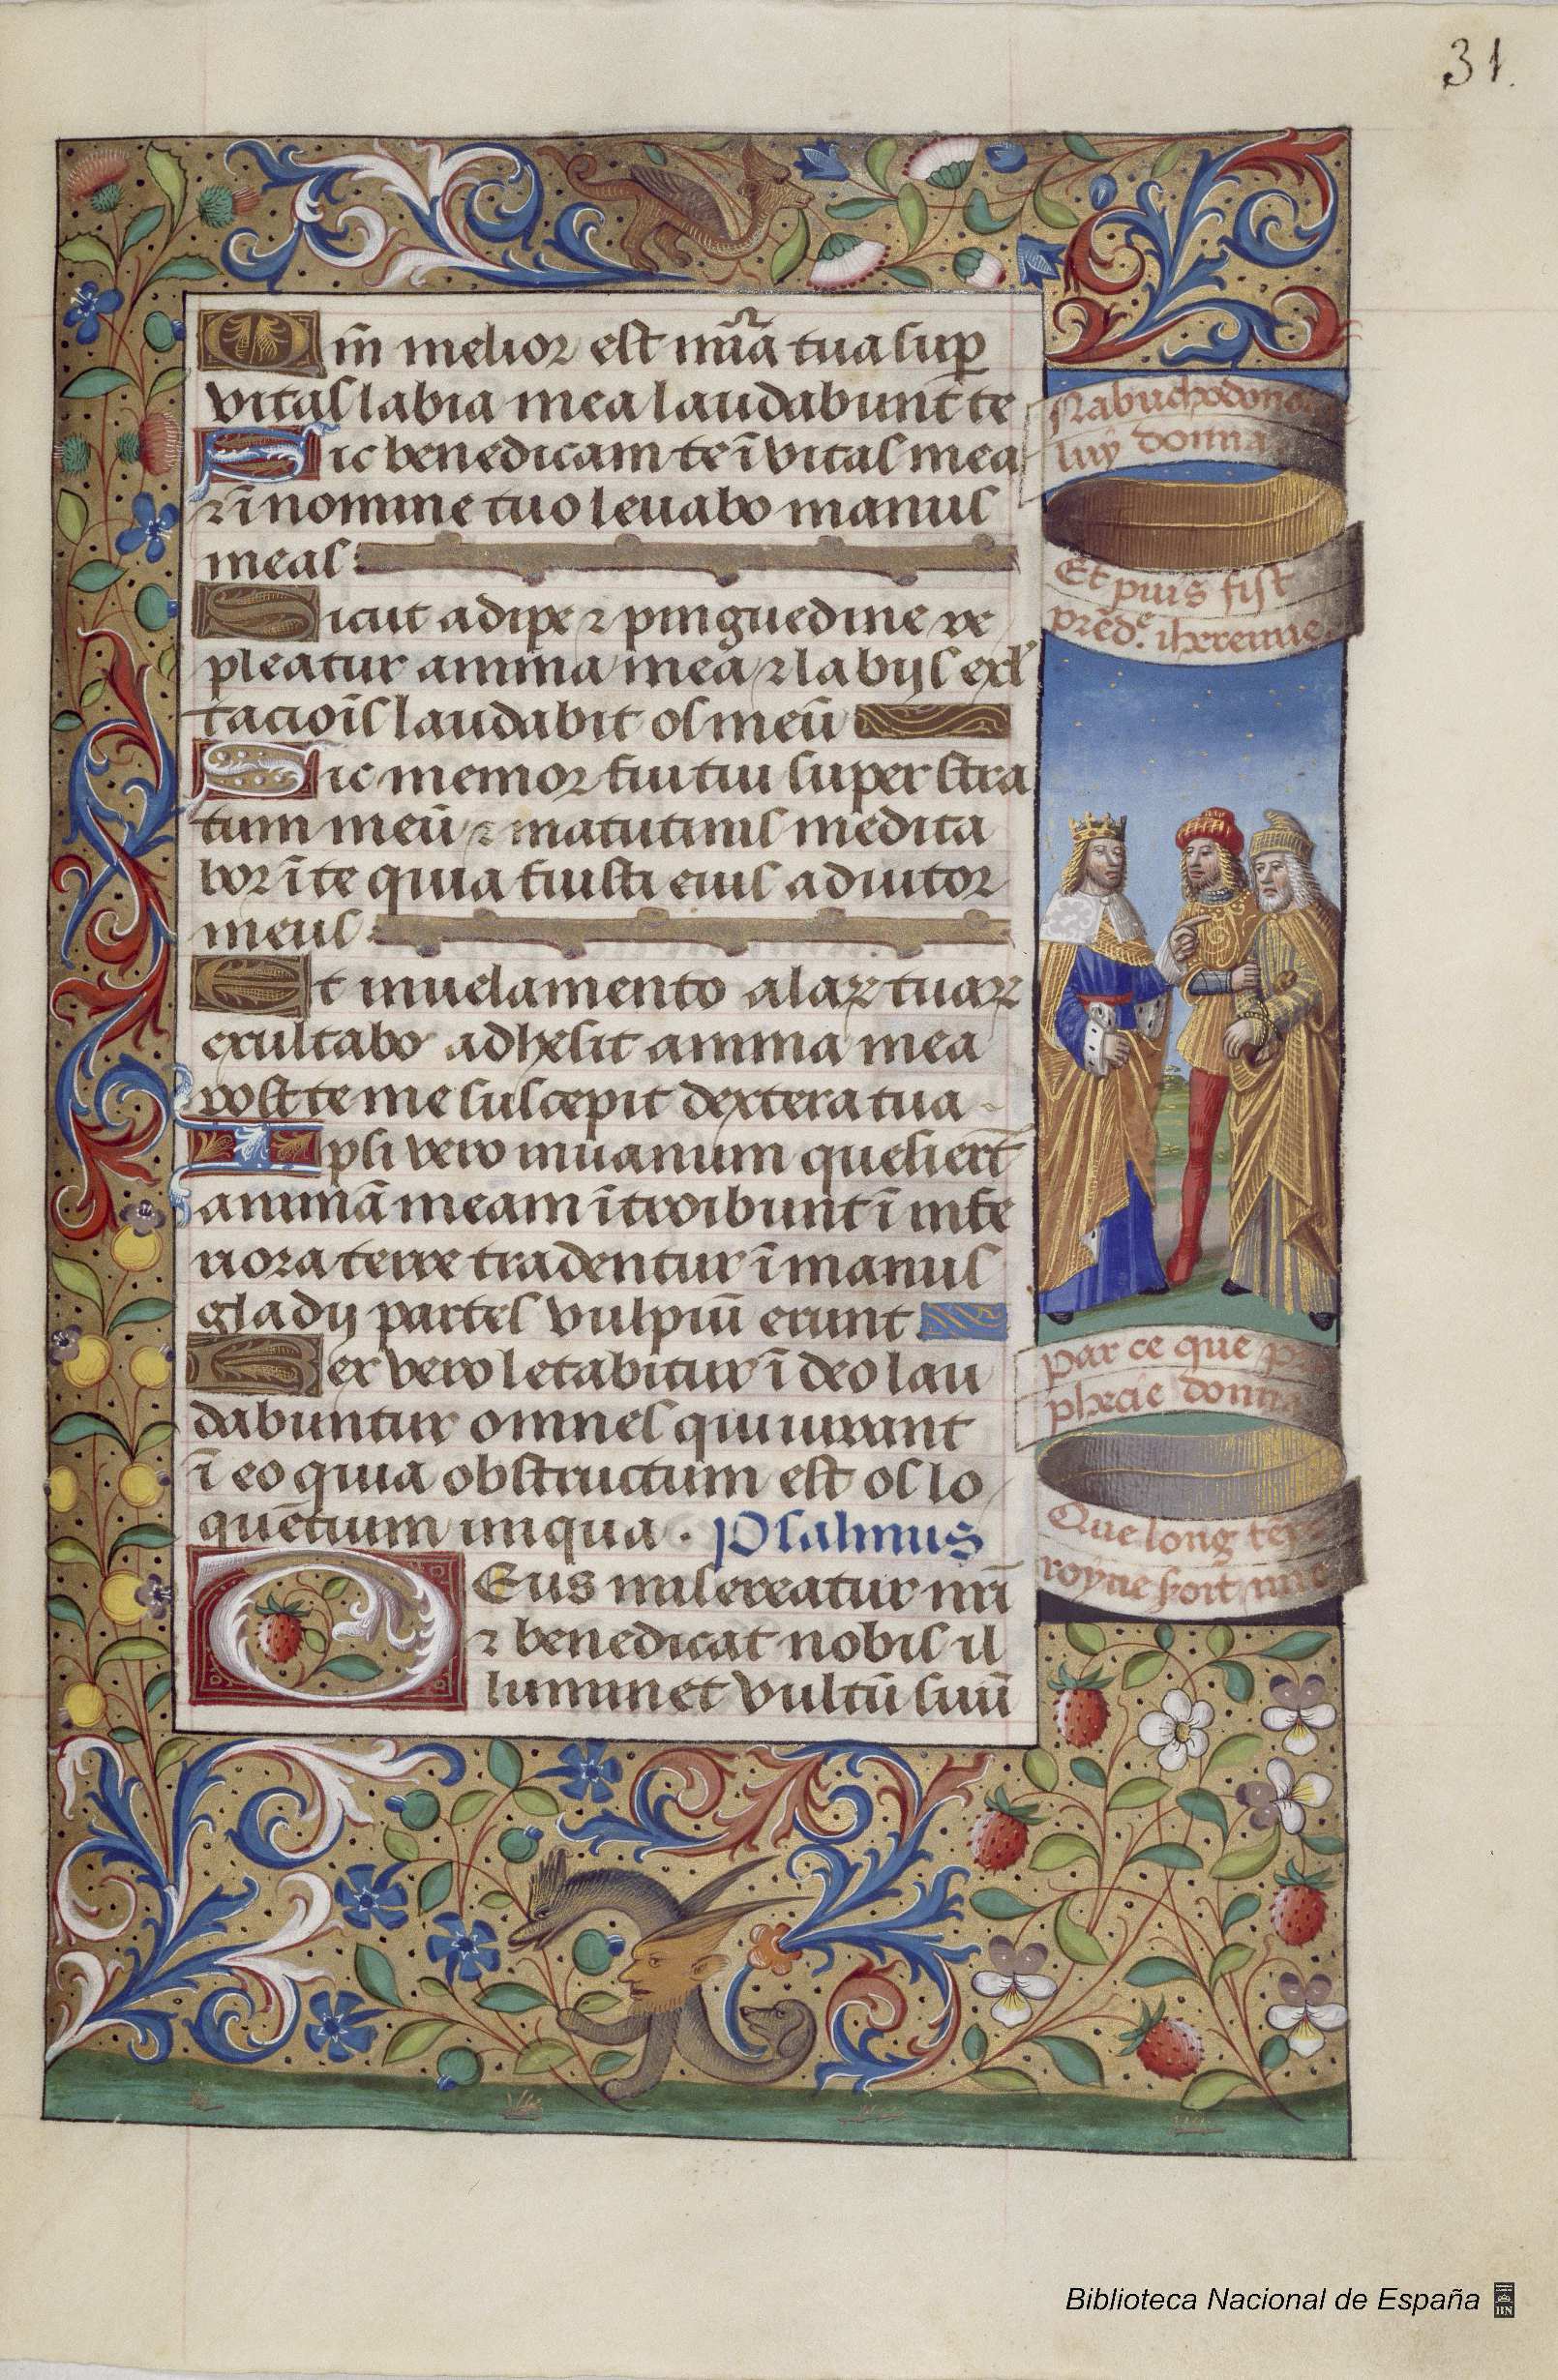 31.
Qm̄ melior est mīa tua sup
vitas labia mea laudabunt te
Sic benedicam te ī vitas mea
⁊ ī nomine tuo levabo manus
meas
Sicut adipe ⁊ pinguedine re
pleatur anima mea ⁊ labijs exl
tacioīs laudabit os meū
Sic memor fui tui super stra
tum meū ⁊ matutinis medita
bor ī te quia fuisti eius adiutor
meus
Et in velamento alaꝝ tuaꝝ
exultabo adhesit anima mea
post te me suscepit dextera tua
Ipsi vero in vanum quesiert̄
animā meam ītroibunt ī infe
riora terre tradentur ī manus
gladij partes vulpiū erunt
Rex vero letabitur ī deo lau
dabuntur omnes qui iurant
ī eo quia obstructum est os lo
quētium iniqua . Psalmus
Deus misereatur nr̄i
⁊ benedicat nobis il
luminet vultū suū
Nabuchodono
luy donna
Et puis fist
prēdᵉ. iheremie
Par ce que p
phecie donna
Que long tēps
royne soit
Biblioteca Nacional de España
BN